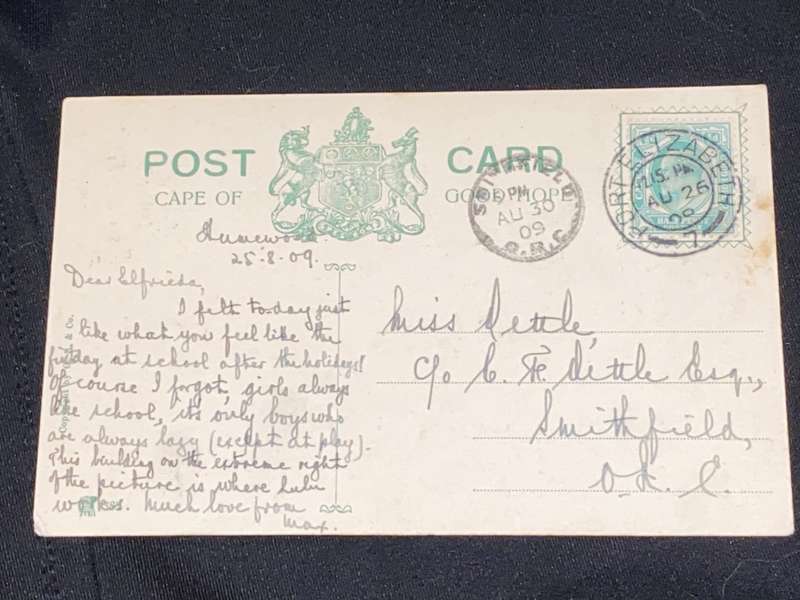 POST CARD
CAPE OF GOOD HOPE
PORT ELIZABETH
AU 26
09
7
SMITHFIELD
PM
AU 30
09
O.R.C.
Humewood
25.8.09.
Dear Elfrieda,
I felt to-day just
like what you feel like the
first day at school after the holidays!
Of course I forgot, girls always
like school, it's only boys who
are always lazy (except at play).
This building on the extreme right
of the picture is where Lulu
works. Much love from
Max.
Miss Dettle,
c/o C. F. Dettle Esq.,
Smithfield,
O.R.C.